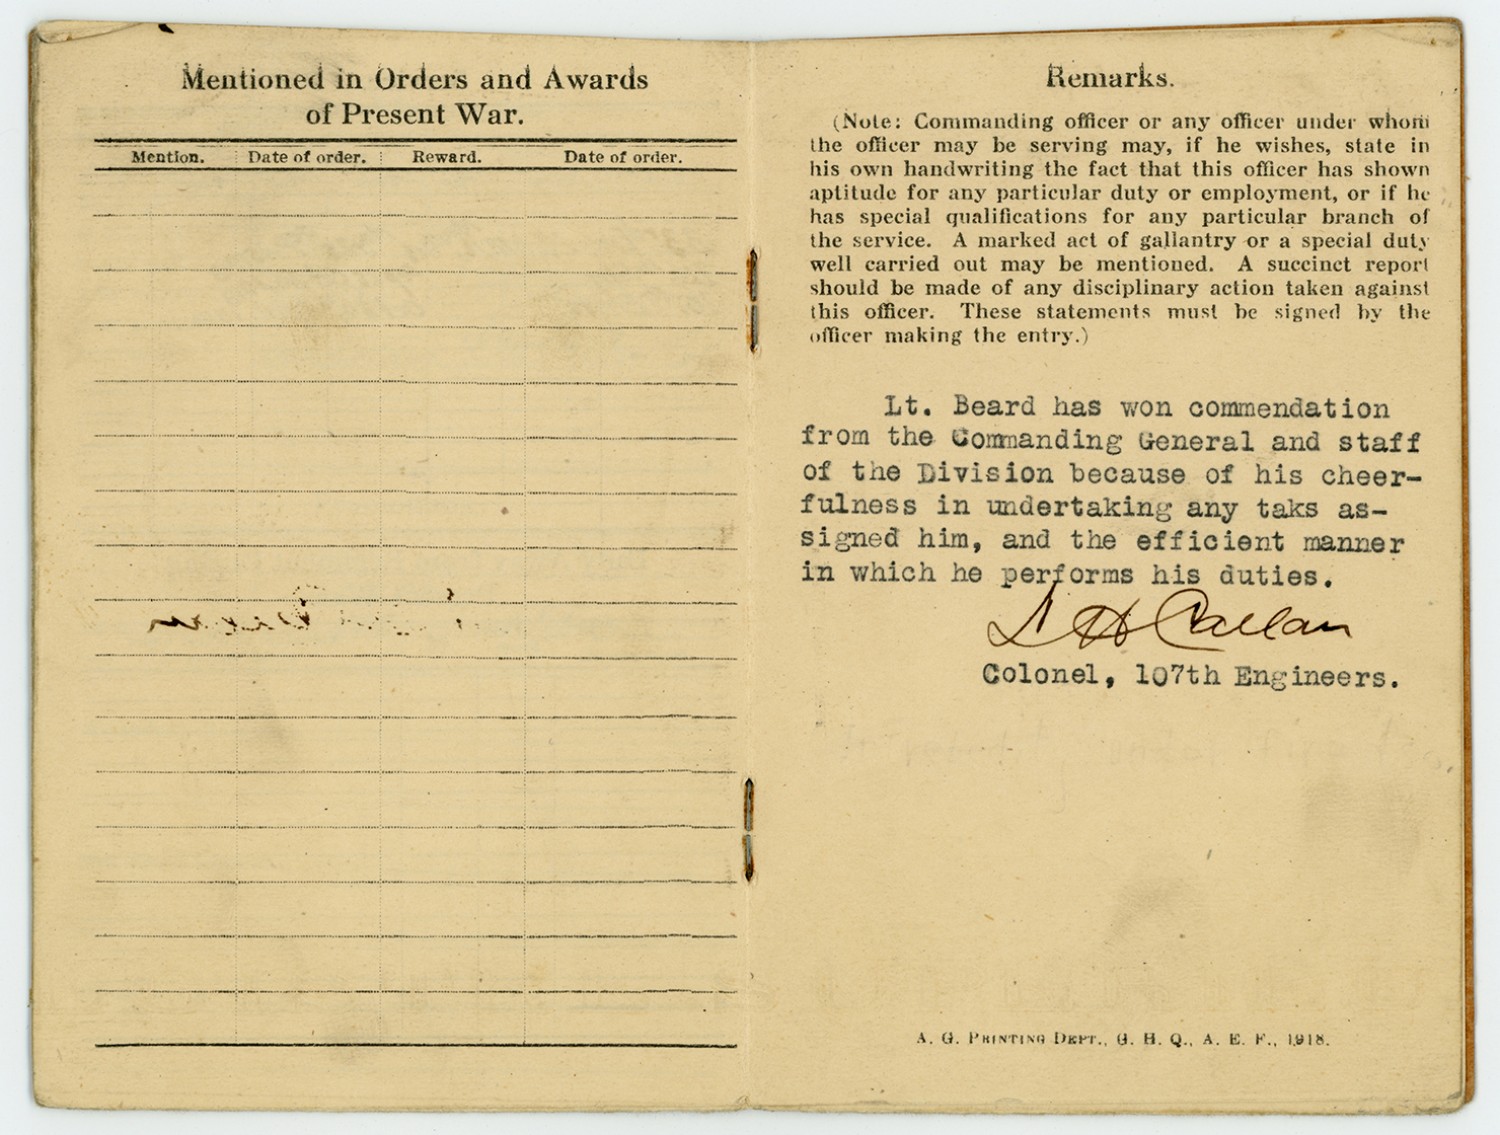 Mentioned in Orders and Awards
of Present War.
Mention. Date of order. Reward. Date of order.
Remarks.
(Note: Commanding officer or any officer under whom
the officer may be serving may, if he wishes, state in
his own handwriting the fact that this officer has shown
aptitude for any particular duty or employment, or if he
has special qualifications for any particular branch of
the service. A marked act of gallantry or a special duty
well carried out may be mentioned. A succinct report
should be made of any disciplinary action taken against
this officer. These statements must be signed by the
officer making the entry.)
Lt. Beard has won commendation
from the Commanding General and staff
of the Division because of his cheer-
fulness in undertaking any taks as-
signed him, and the efficient manner
in which he performs his duties.
Callan
Colonel, 107th Engineers.
A. G. Printing Dept., G. H. Q., A. E. F., 1918.